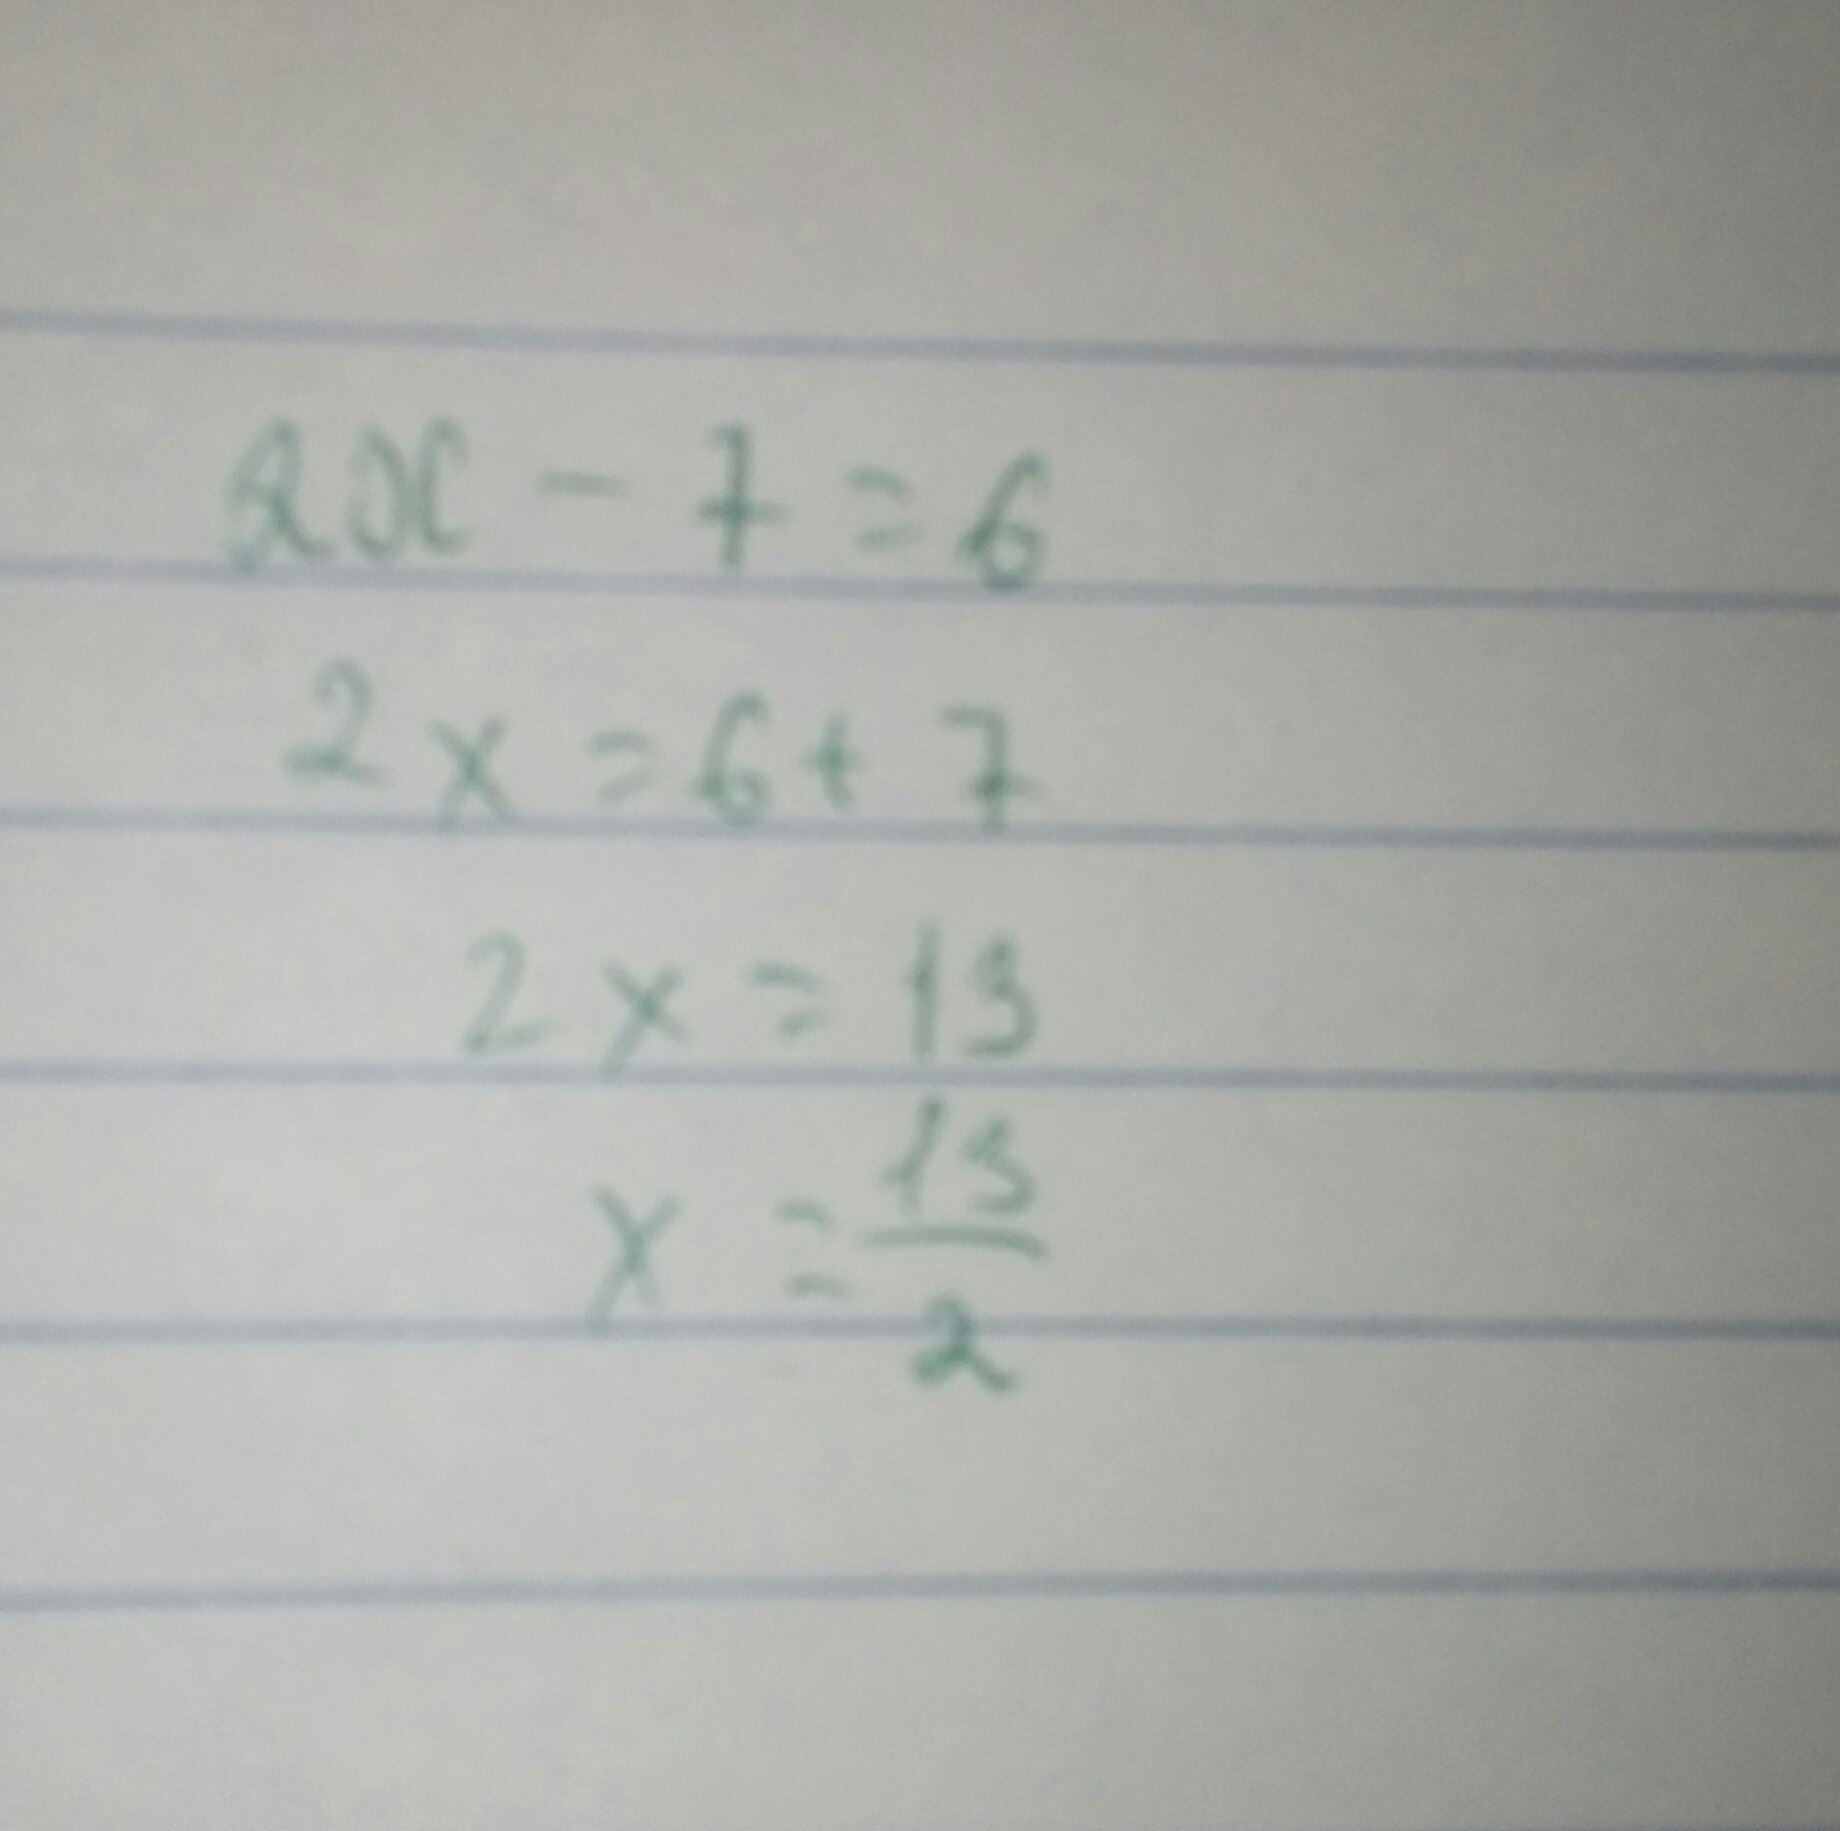 2x - 7 = 6
2x = 6 + 7
2x = 13
x = 13/2